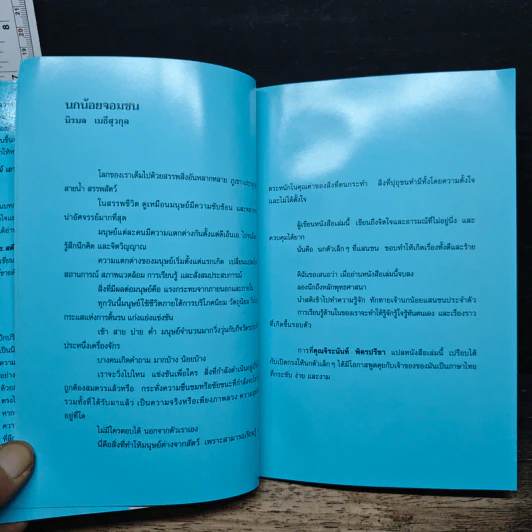 นกน้อยจอมซน
นิรมล เมธีสุวกุล
โลกของเราเต็มไปด้วยสรรพสิ่งอันหลากหลาย ภูเขา
สายน้ำ สรรพสัตว์
ในสรรพชีวิต ดูเหมือนมนุษย์มีความซับซ้อน และ
น่าอัศจรรย์มากที่สุด
มนุษย์แต่ละคนมีความแตกต่างกันตั้งแต่ดีเอ็นเอ
รู้สึกนึกคิด และจิตวิญญาณ
ความแตกต่างของมนุษย์เริ่มตั้งแต่แรกเกิด
สถานการณ์ สภาพแวดล้อม การเรียนรู้ และสั่งสมประสบการณ์
สิ่งที่มีผลต่อมนุษย์คือ แรงกระทบจากภายนอกและภายใน
ทุกวันนี้มนุษย์ใช้ชีวิตภายใต้การบริโภคนิยม วัตถุนิยม
กระแสแห่งการดิ้นรน แก่งแย่งแข่งขัน
เช้า สาย บ่าย ค่ำ มนุษย์จำนวนมากวิ่งวุ่นกับกิจวัตร
ประหนึ่งเครื่องจักร
บางคนเกิดคำถาม มากบ้าง น้อยบ้าง
เราจะวิ่งไปไหน แข่งขันเพื่อใคร สิ่งที่กำลังดำเนินอยู่
ถูกต้องสมควรแล้วหรือ กระทั่งความชื่นชมหรือชัยชนะที่กำลัง
รวมทั้งที่ได้รับมาแล้ว เป็นความจริงหรือเพียงภาพลวง
อยู่ที่ใด
ไม่มีใครตอบได้ นอกจากตัวเราเอง
นี่คือสิ่งที่ทำให้มนุษย์ต่างจากสัตว์ เพราะสามารถเรียนรู้
ตระหนักในคุณค่าของสิ่งที่ตนกระทำ สิ่งที่ปุถุชนทำมีทั้งโดยความตั้งใจ
และไม่ได้ตั้งใจ
ผู้เขียนหนังสือเล่มนี้ เขียนถึงจิตใจและอารมณ์ที่ไม่อยู่นิ่ง และ
ควบคุมได้ยาก
นั่นคือ นกตัวเล็กๆ ที่แสนซน ชอบทำให้เกิดเรื่องทั้งดีและร้าย
ดิฉันขอเสนอว่า เมื่ออ่านหนังสือเล่มนี้จบลง
ลองนึกถึงหลักพุทธศาสนา
นำสติเข้าไปทำความรู้จัก ทักทายเจ้านกน้อยแสนซนประจำตัว
การเรียนรู้ด้านในของเราจะทำให้รู้จักรู้ใจรู้ทันตนเอง และเรื่องราว
ที่เกิดขึ้นรอบตัว
การที่คุณจิระนันท์ พิตรปรีชา แปลหนังสือเล่มนี้ เปรียบได้
กับเปิดกรงให้นกตัวเล็กๆ ได้มีโอกาสพูดคุยกับเจ้าของของมันเป็นภาษาไทย
ที่กระชับ ง่าย และงาม